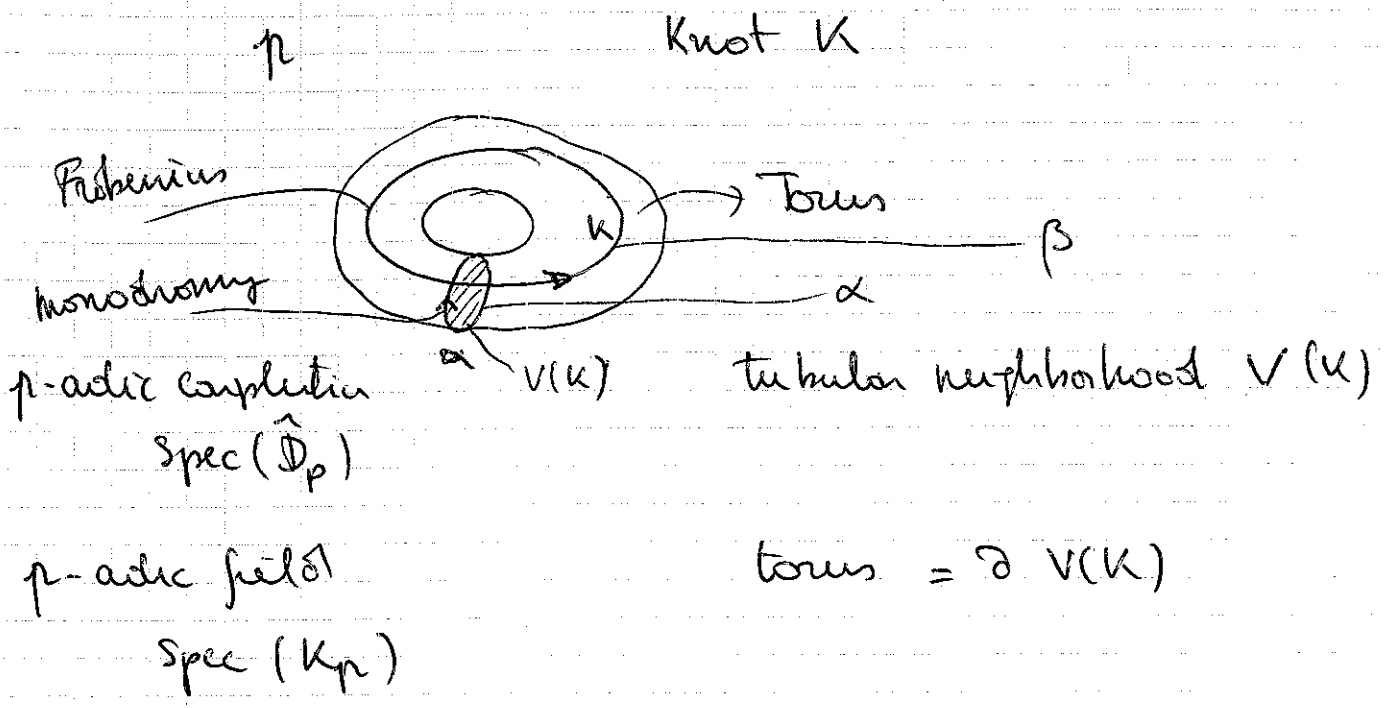 p Knot K
Frobenius
K
→ Torus
β
monodromy
α
α V(K)
p-adic completion tubular neighborhood V(K)
Spec(Ô_p)
p-adic field torus = ∂ V(K)
Spec (K_p)